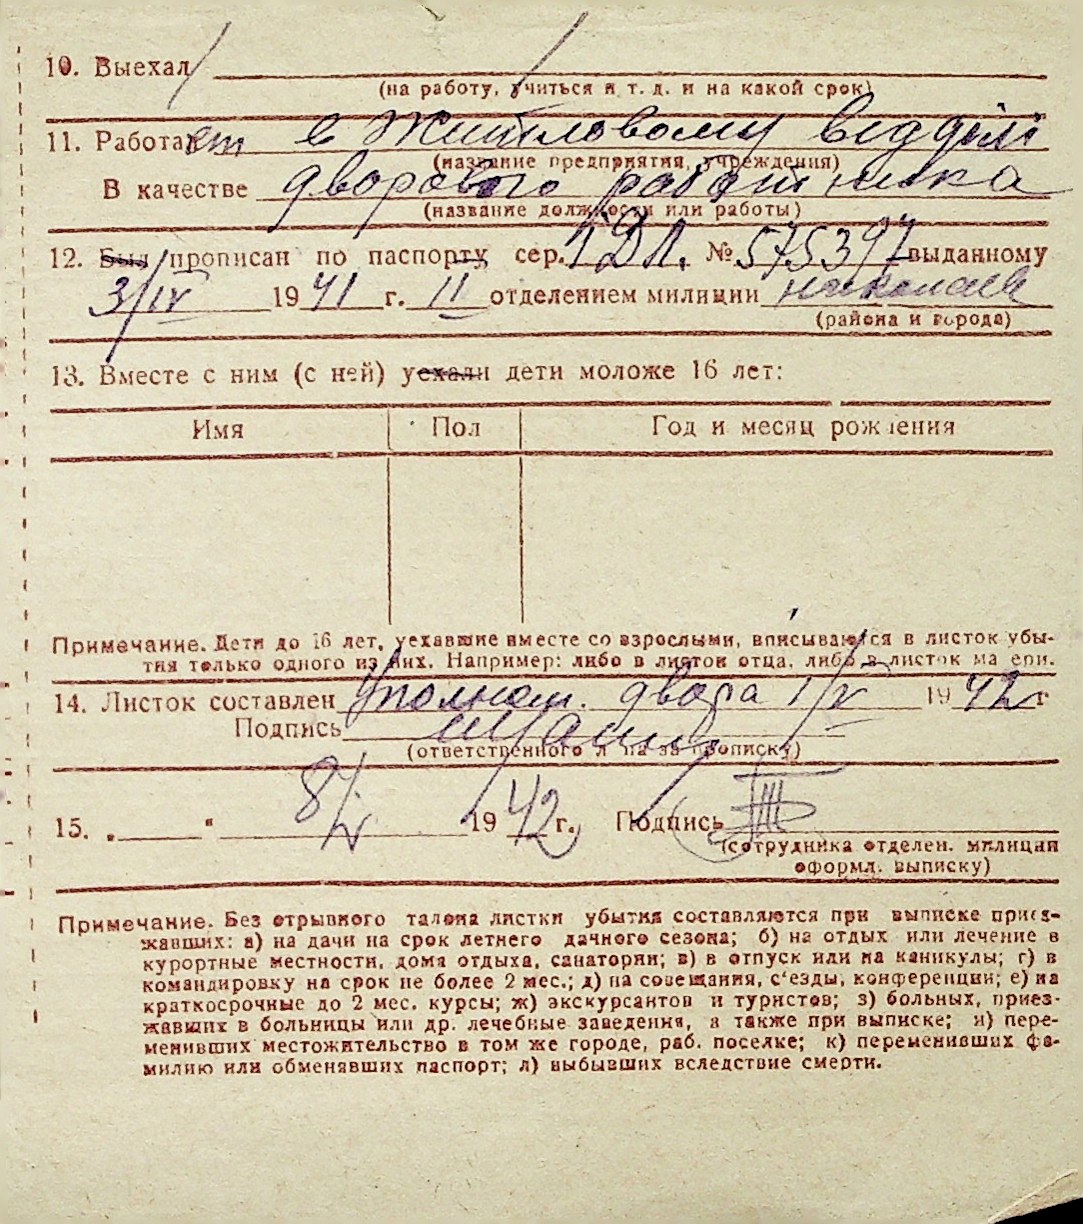 10. Выехал
(на работу, учиться и т. д. и на какой срок)
11. Работает в Житловому відділі
(название предприятия, учреждения)
В качестве дворового работника
(название должности или работы)
12. Был прописан по паспорту сер. № 575397 выданному
3/IV 1941 г. II отделением милиции Николаев
(района и города)
13. Вместе с ним (с ней) уехали дети моложе 16 лет:
Имя Пол Год и месяц рождения
Примечание. Дети до 16 лет, уехавшие вместе со взрослыми, вписываются в листок убы-
тия только одного из них. Например: либо в листок отца, либо в листок матери.
14. Листок составлен Уполном. двора 1/V 1942 г
Подпись
(ответственного лица за прописку)
15. „ " 8/V 1942 г. Подпись
(сотрудника отделен. милиции
оформл. выписку)
Примечание. Без отрывного талона листки убытия составляются при выписке приез-
жавших: а) на дачи на срок летнего дачного сезона; б) на отдых или лечение в
курортные местности, дома отдыха, санатории; в) в отпуск или на каникулы; г) в
командировку на срок не более 2 мес.; д) на совещания, с'езды, конференции; е) на
краткосрочные до 2 мес. курсы; ж) экскурсантов и туристов; з) больных, приез-
жавших в больницы или др. лечебные заведения, а также при выписке; и) пере-
менивших местожительство в том же городе, раб. поселке; к) переменивших фа-
милию или обменявших паспорт; л) выбывших вследствие смерти.